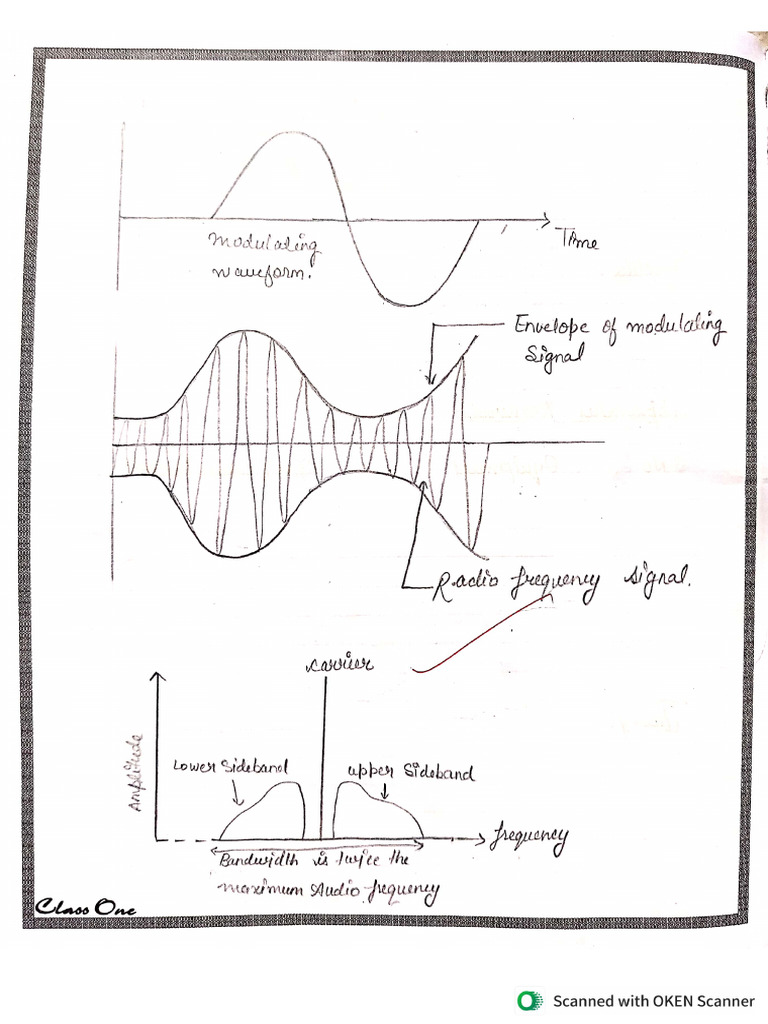 Modulating
waveform.
Time
Envelope of modulating
Signal
Radio frequency signal.
carrier
Amplitude
Lower Sideband
upper Sideband
frequency
Bandwidth is twice the
maximum Audio frequency
Class One
Scanned with OKEN Scanner